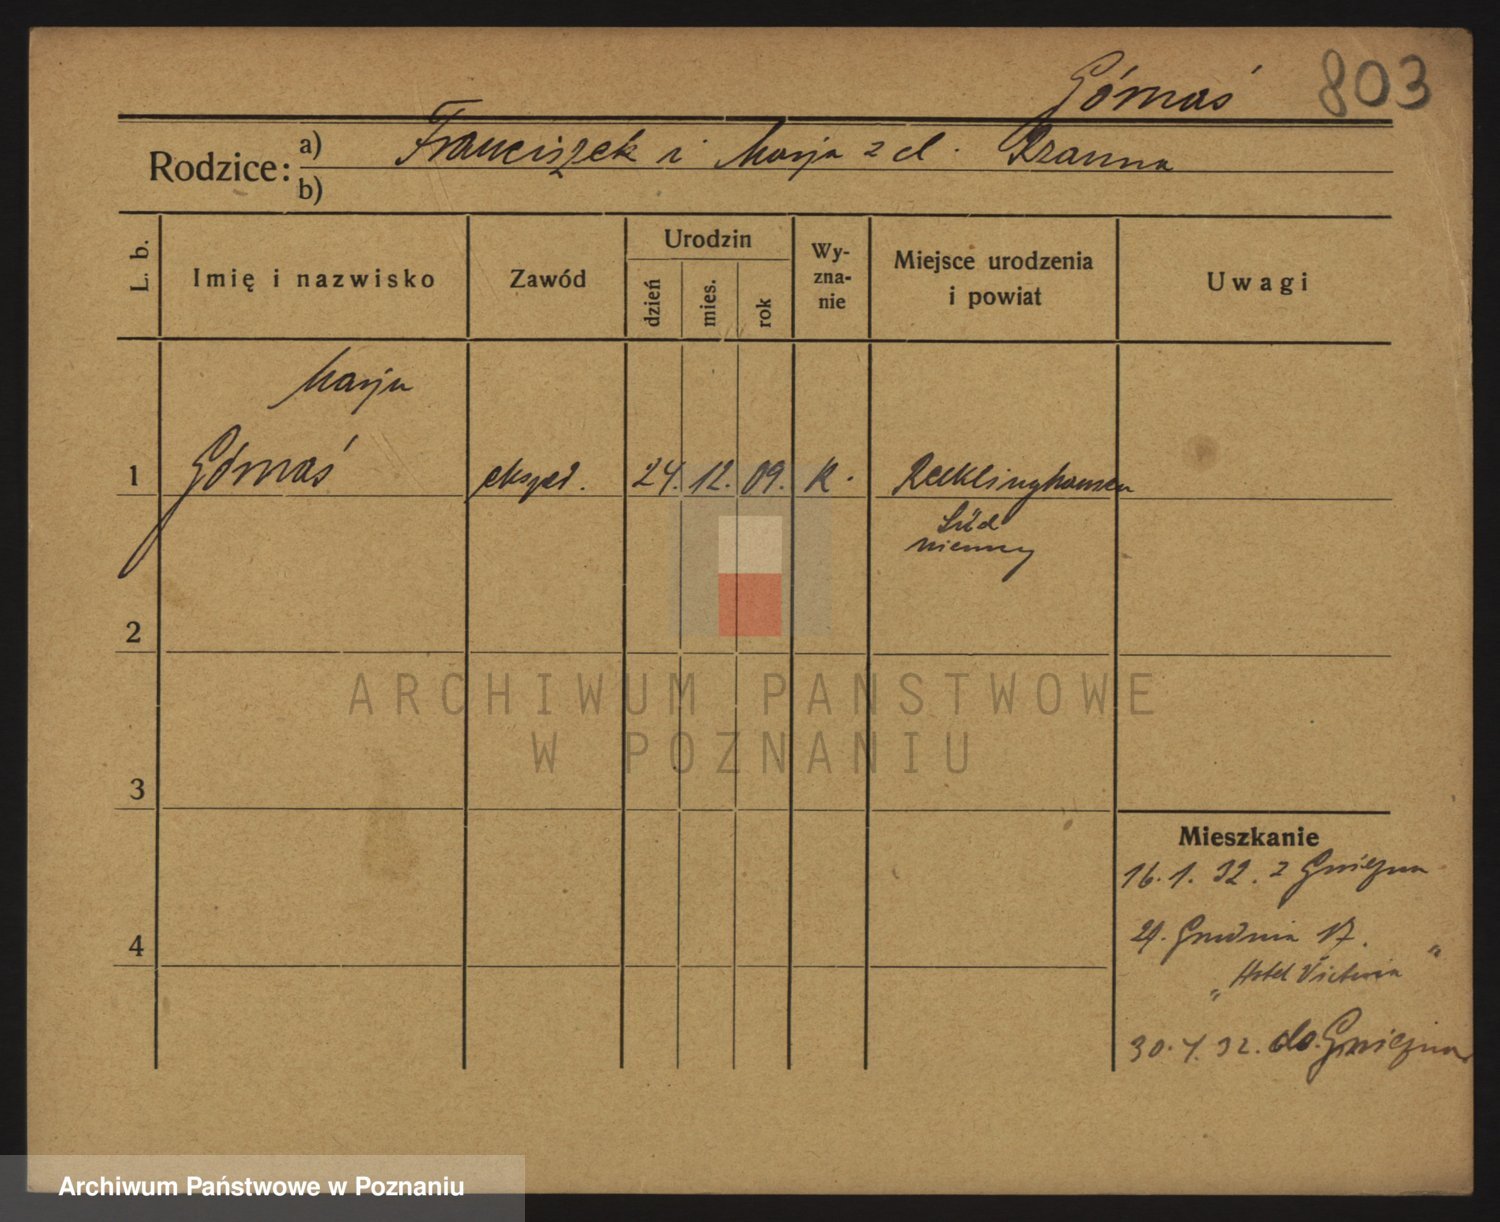 Górnaś 803
Rodzice: a) Franciszek i Marja z d. Rzanna
b)
L. b.
Imię i nazwisko
Zawód
Urodzin
dzień
mies.
rok
Wy-
zna-
nie
Miejsce urodzenia
i powiat
Uwagi
Marja
1 Górnaś eksped. 24. 12. 09. R. Recklinghausen
Süd
niemcy
2
ARCHIWUM PAŃSTWOWE
W POZNANIU
3
Mieszkanie
16. 1. 32. z Gniezna
4 21. Grudnia 17. "
" Hotel Victoria
30. 4. 32. do Gniezna
Archiwum Państwowe w Poznaniu